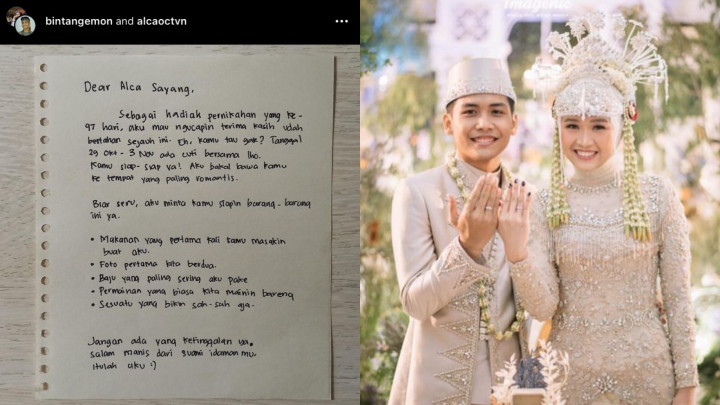 bintangemon and alcaoctvn
Dear Alca Sayang,
Sebagai hadiah pernikahan yang ke-
97 hari, aku mau ngucapin terima kasih udah
bertahan sejauh ini. Eh, kamu tau gak? Tanggal
29 okt - 3 Nov ada cuti bersama lho.
Kamu siap-siap ya! Aku bakal bawa kamu
ke tempat yang paling romantis.
Biar seru, aku minta kamu siapin barang-barang
ini ya.
• Makanan yang pertama kali kamu masakin
buat aku.
• Foto pertama kita berdua.
• Baju yang paling sering aku pake
• Permainan yang biasa kita mainin bareng
• Sesuatu yang bikin sah-sah aja.
Jangan ada yang ketinggalan ya,
salam manis dari suami idamanmu.
Itulah aku :)
imagenic